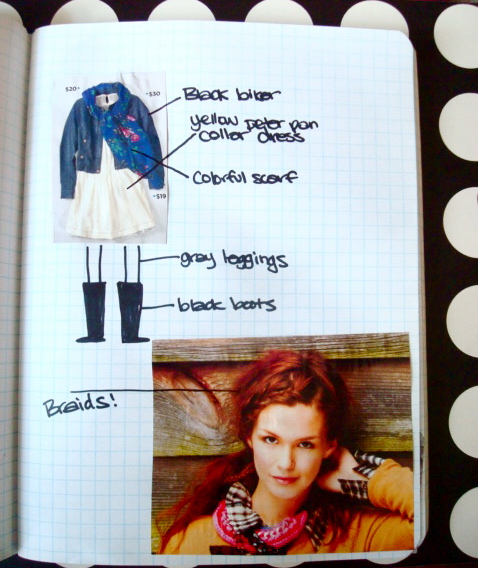 $20-
-$30
Black biker
yellow peter pan
coller dress
colorful scarf
-$19
gray leggings
black boots
Braids!